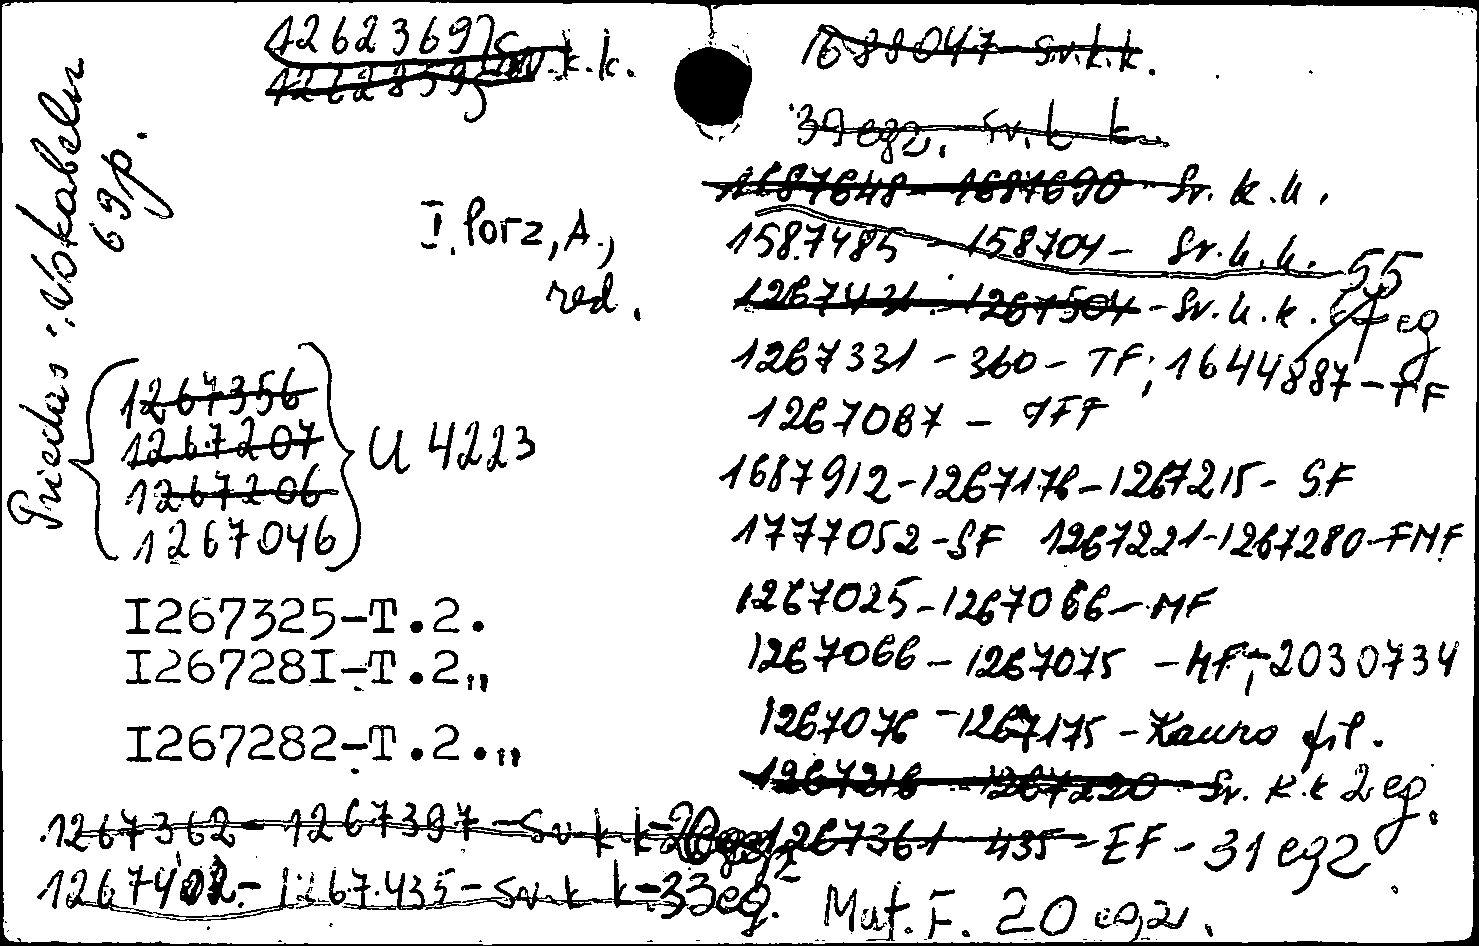 1262369 Sv.k.k.
1262859
Priedas: Vokabeln
69p.
I. Porz, A.,
red.
1267356
1267207
1267206
1267046
U 4223
I267325-T.2.
I26728I-T.2.,,
I267282-T.2.,,
1267362- 1267397 -Sv.k.k-20egz
1267402.- 1267435- Sv.k.k-33eg.
1688047 Sv.k.k.
39 egz. Sv.k.k.
1687648- 1687690 - Sv.k.k.
1587485 - 158704- Sv.k.k. 55
1267431 - 1267504 - Sv.k.k. eg
1267331 - 360 - TF; 1644887-TF
1267087 - TFF
1687912-1267176-1267215- SF
1777052-SF 1267221-1267280-FMF
1267025-1267066-MF
1267066- 1267075 -MF, 2030734
1267076 -1267175 - Kauno fil.
1267216 - 1267220 - Sv. k.k 2 eg.
1267361 - 435 - EF - 31 egz
Mat.F. 20 egz.